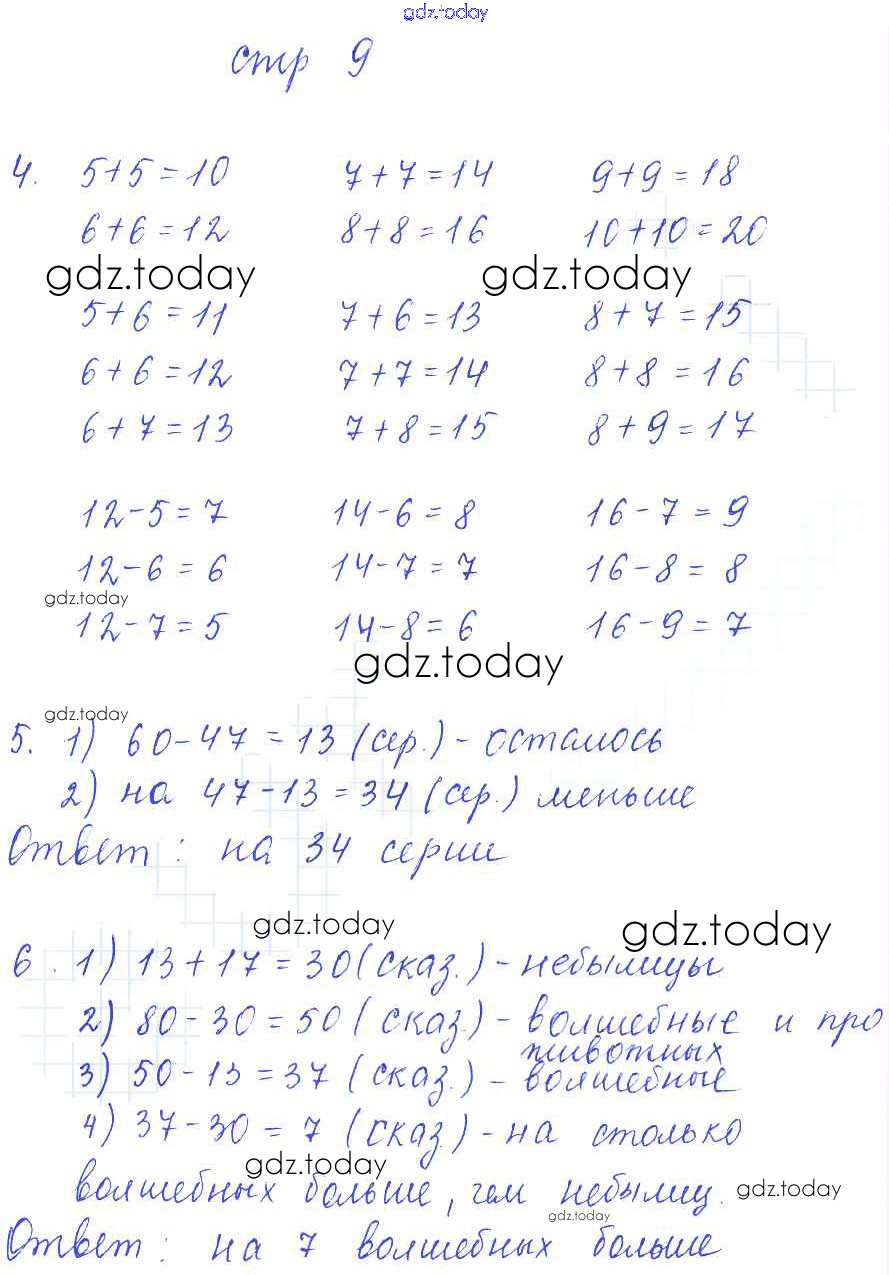 gdz.today
стр 9
4. 5+5=10 7+7=14 9+9=18
6+6=12 8+8=16 10+10=20
gdz.today gdz.today
5+6=11 7+6=13 8+7=15
6+6=12 7+7=14 8+8=16
6+7=13 7+8=15 8+9=17
12-5=7 14-6=8 16-7=9
12-6=6 14-7=7 16-8=8
gdz.today
12-7=5 14-8=6 16-9=7
gdz.today
gdz.today
5. 1) 60-47=13 (сер.) - осталось
2) на 47-13=34 (сер.) меньше
Ответ: на 34 серии
gdz.today gdz.today
6. 1) 13+17=30 (сказ.) - небылицы
2) 80-30=50 (сказ.) - волшебные и про
животных
3) 50-13=37 (сказ.) - волшебные
4) 37-30=7 (сказ.) - на столько
gdz.today
волшебных больше, чем небылиц.
gdz.today
gdz.today
Ответ: на 7 волшебных больше